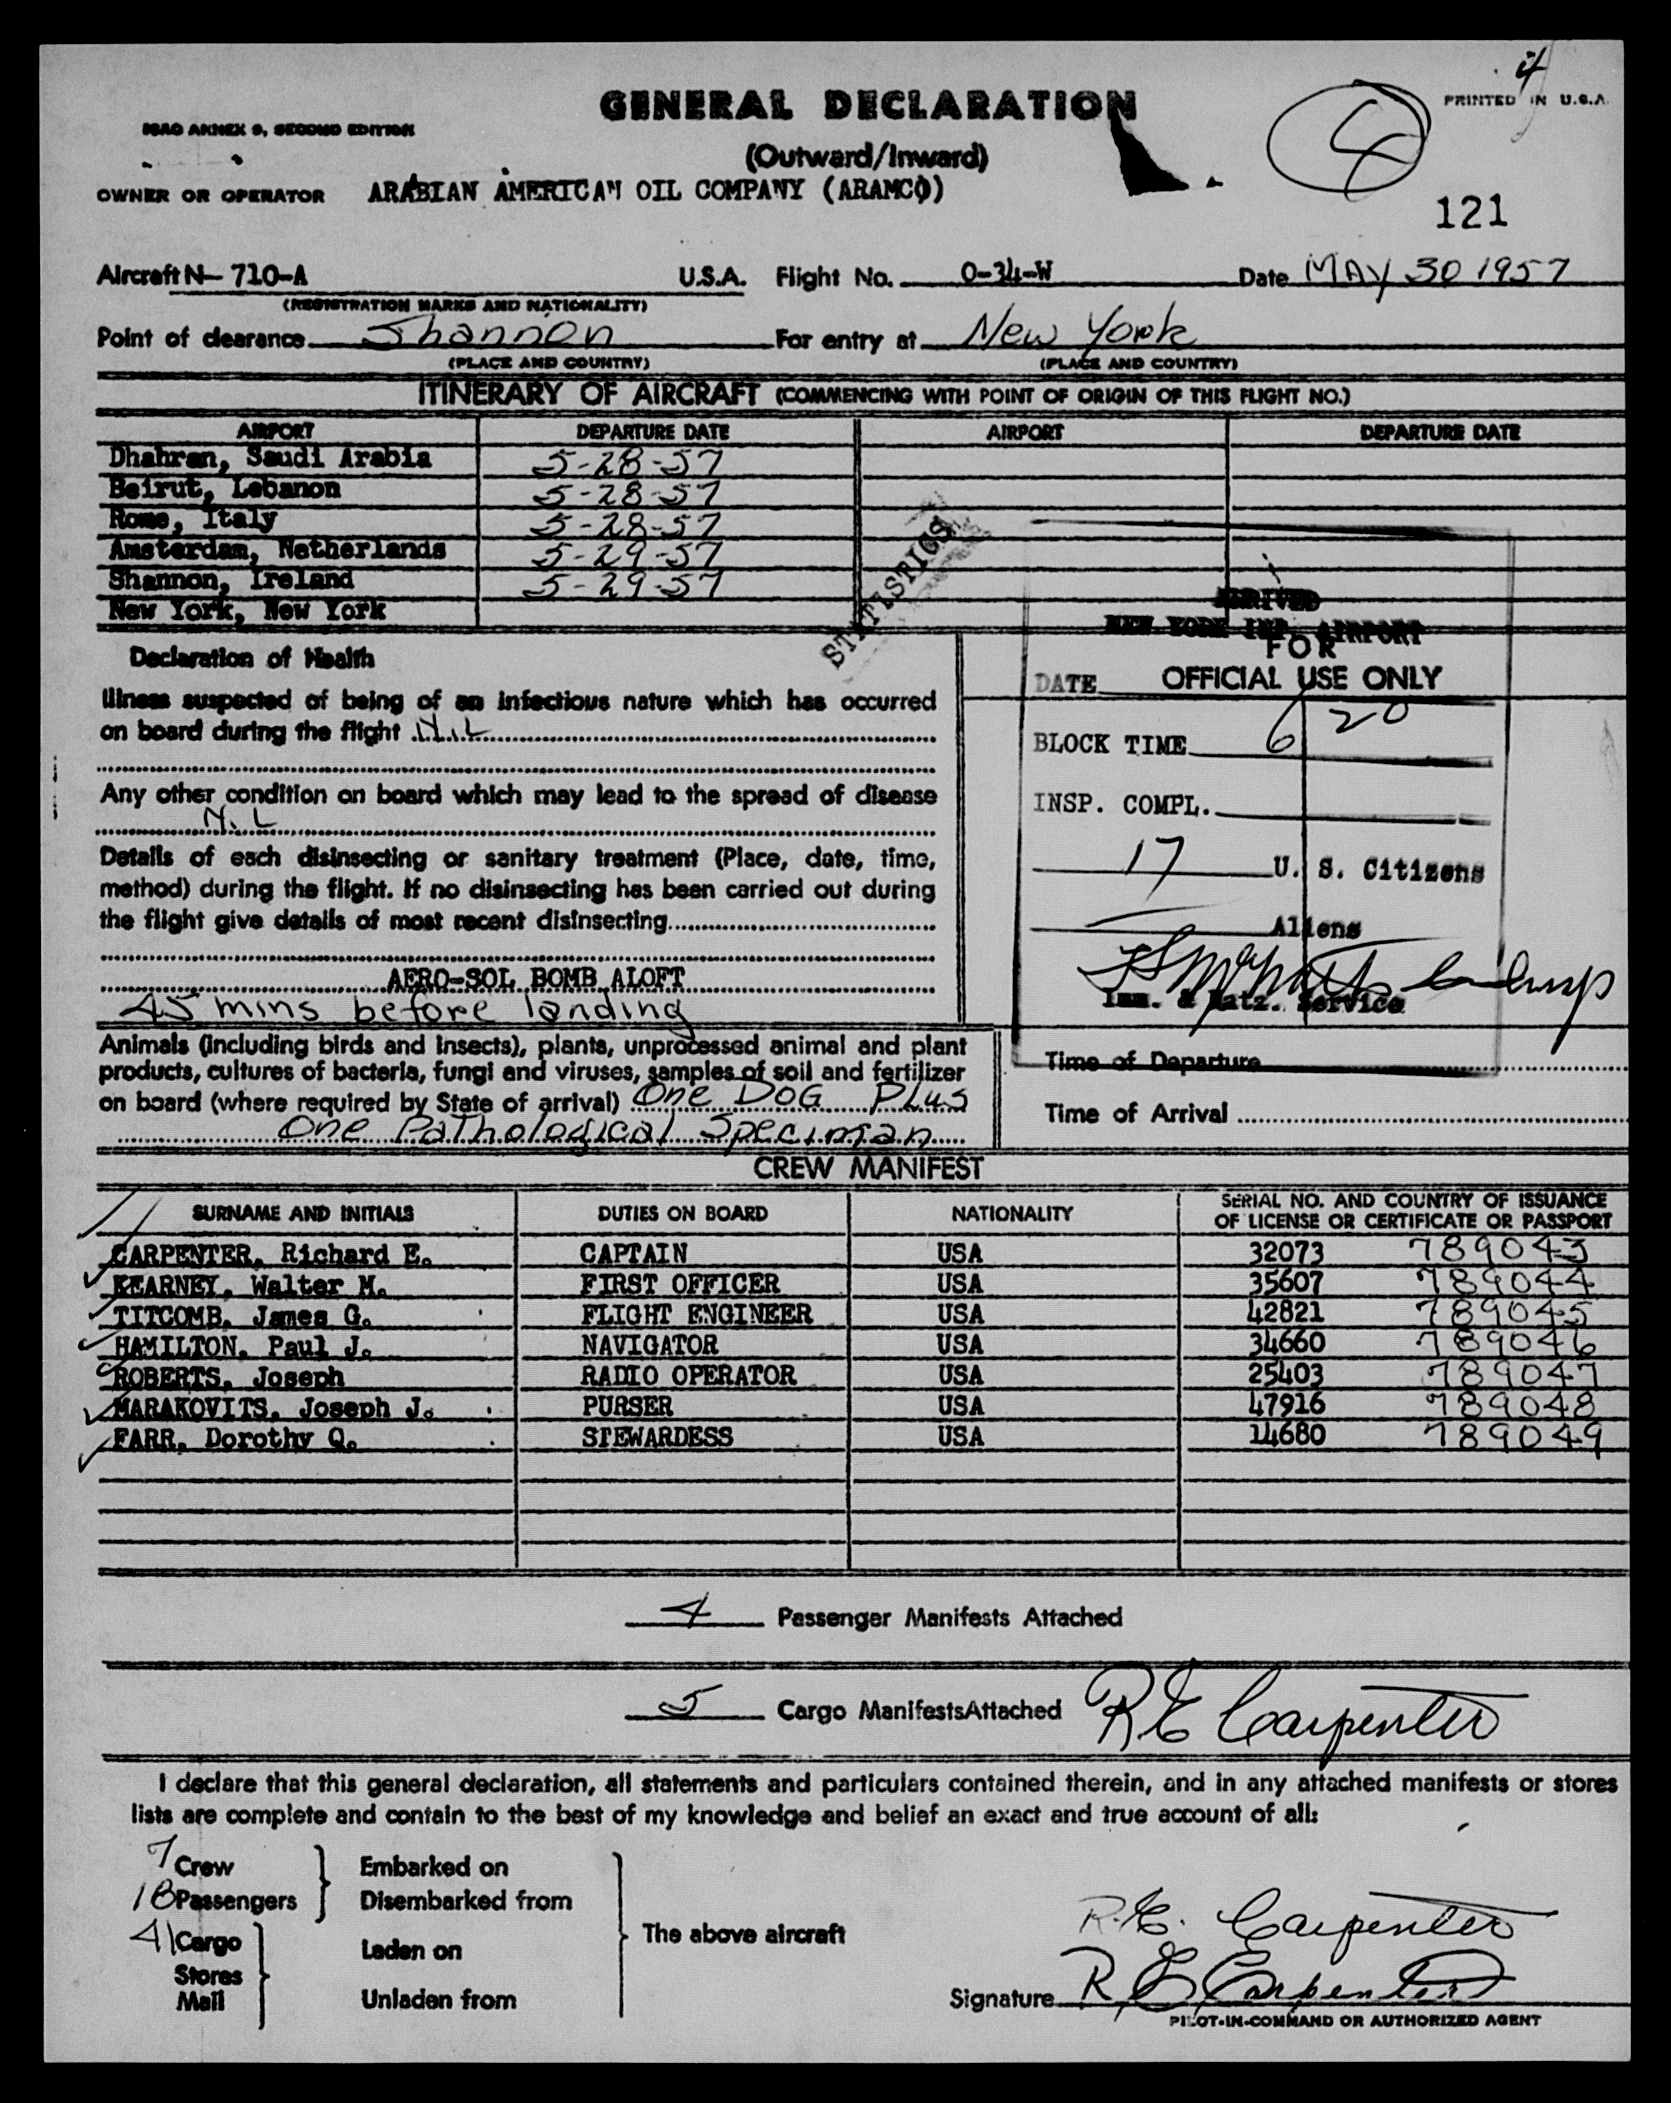 PRINTED IN U.S.A.
4
GENERAL DECLARATION
ICAO ANNEX 9, SECOND EDITION
(Outward/Inward)
OWNER OR OPERATOR ARABIAN AMERICAN OIL COMPANY (ARAMCO)
121
Aircraft N- 710-A U.S.A. Flight No. O-34-W Date MAY 30 1957
(REGISTRATION MARKS AND NATIONALITY)
Point of clearance Shannon For entry at New York
(PLACE AND COUNTRY) (PLACE AND COUNTRY)
ITINERARY OF AIRCRAFT (COMMENCING WITH POINT OF ORIGIN OF THIS FLIGHT NO.)
AIRPORT DEPARTURE DATE AIRPORT DEPARTURE DATE
Dhahran, Saudi Arabia 5-28-57
Beirut, Lebanon 5-28-57
Rome, Italy 5-28-57
Amsterdam, Netherlands 5-29-57
Shannon, Ireland 5-29-57
New York, New York
STATISTICS
ARRIVED
NEW YORK INT. AIRPORT
FOR
OFFICIAL USE ONLY
DATE
BLOCK TIME 6 20
INSP. COMPL.
17 U. S. Citizens
Aliens
Imm. & Natz. Service
Time of Departure
Time of Arrival
Declaration of Health
Illness suspected of being of an infectious nature which has occurred
on board during the flight N.L
Any other condition on board which may lead to the spread of disease
N.L
Details of each disinsecting or sanitary treatment (Place, date, time,
method) during the flight. If no disinsecting has been carried out during
the flight give details of most recent disinsecting
AERO-SOL BOMB ALOFT
45 mins before landing
Animals (including birds and insects), plants, unprocessed animal and plant
products, cultures of bacteria, fungi and viruses, samples of soil and fertilizer
on board (where required by State of arrival) One DOG PLus
One Pathological Speciman
CREW MANIFEST
SURNAME AND INITIALS DUTIES ON BOARD NATIONALITY SERIAL NO. AND COUNTRY OF ISSUANCE
OF LICENSE OR CERTIFICATE OR PASSPORT
CARPENTER, Richard E. CAPTAIN USA 32073 789043
KEARNEY, Walter M. FIRST OFFICER USA 35607 789044
TITCOMB, James G. FLIGHT ENGINEER USA 42821 789045
HAMILTON, Paul J. NAVIGATOR USA 34660 789046
ROBERTS, Joseph RADIO OPERATOR USA 25403 789047
MARAKOVITS, Joseph J. PURSER USA 47916 789048
FARR, Dorothy Q. STEWARDESS USA 14680 789049
4 Passenger Manifests Attached
5 Cargo ManifestsAttached R E Carpenter
I declare that this general declaration, all statements and particulars contained therein, and in any attached manifests or stores
lists are complete and contain to the best of my knowledge and belief an exact and true account of all:
7 Crew Embarked on
18 Passengers Disembarked from
41 Cargo Laden on The above aircraft R.E. Carpenter
Stores
Mail Unladen from Signature R E Carpenter
PILOT-IN-COMMAND OR AUTHORIZED AGENT